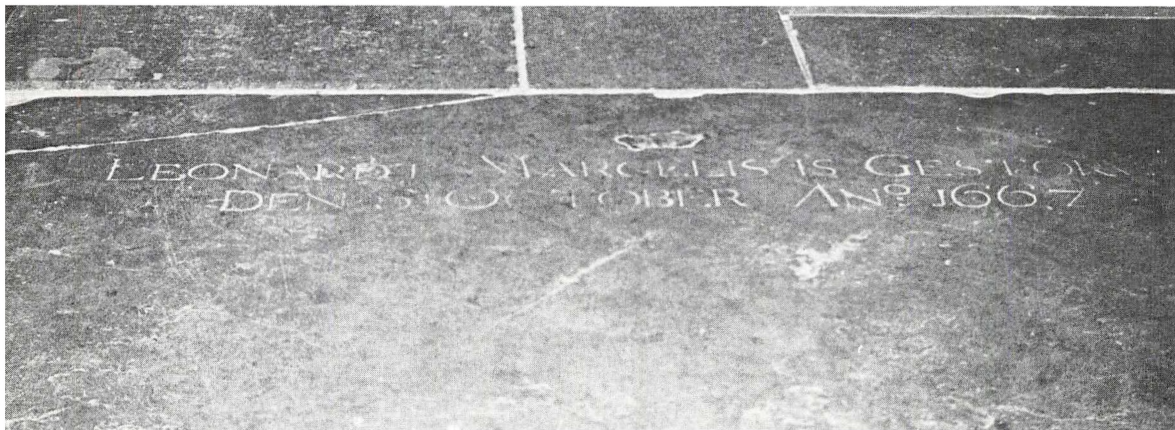 LEONARDT MARCELIS IS GESTORV
DEN 31 OCTOBER ANº 1667